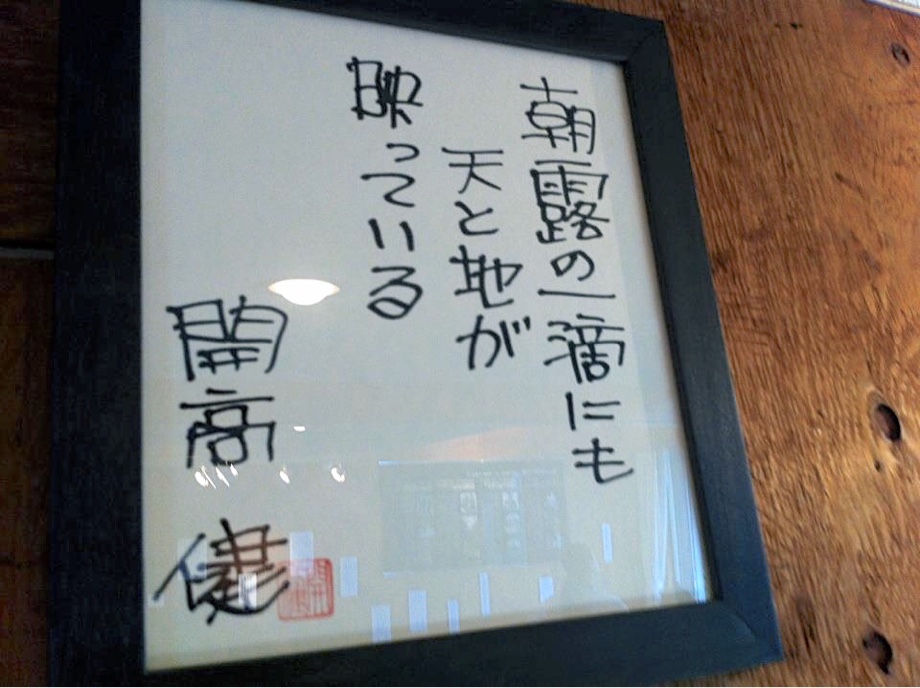 朝露の一滴にも
天と地が
映っている
開高 健